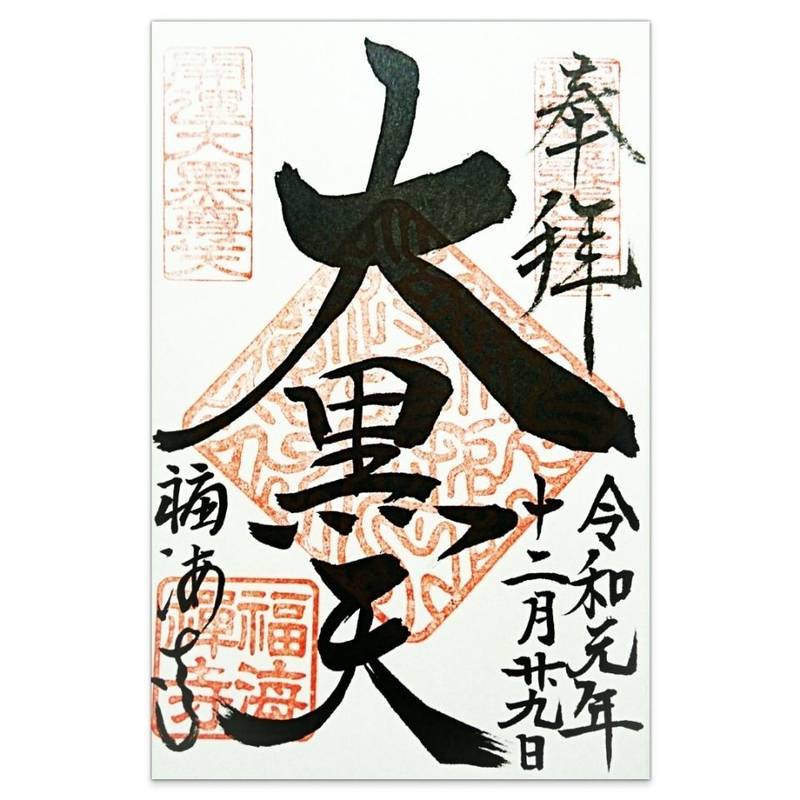 奉拝
令和元年
十二月廿九日
大黒天
開運大黒尊天
福海寺
福海
禅寺